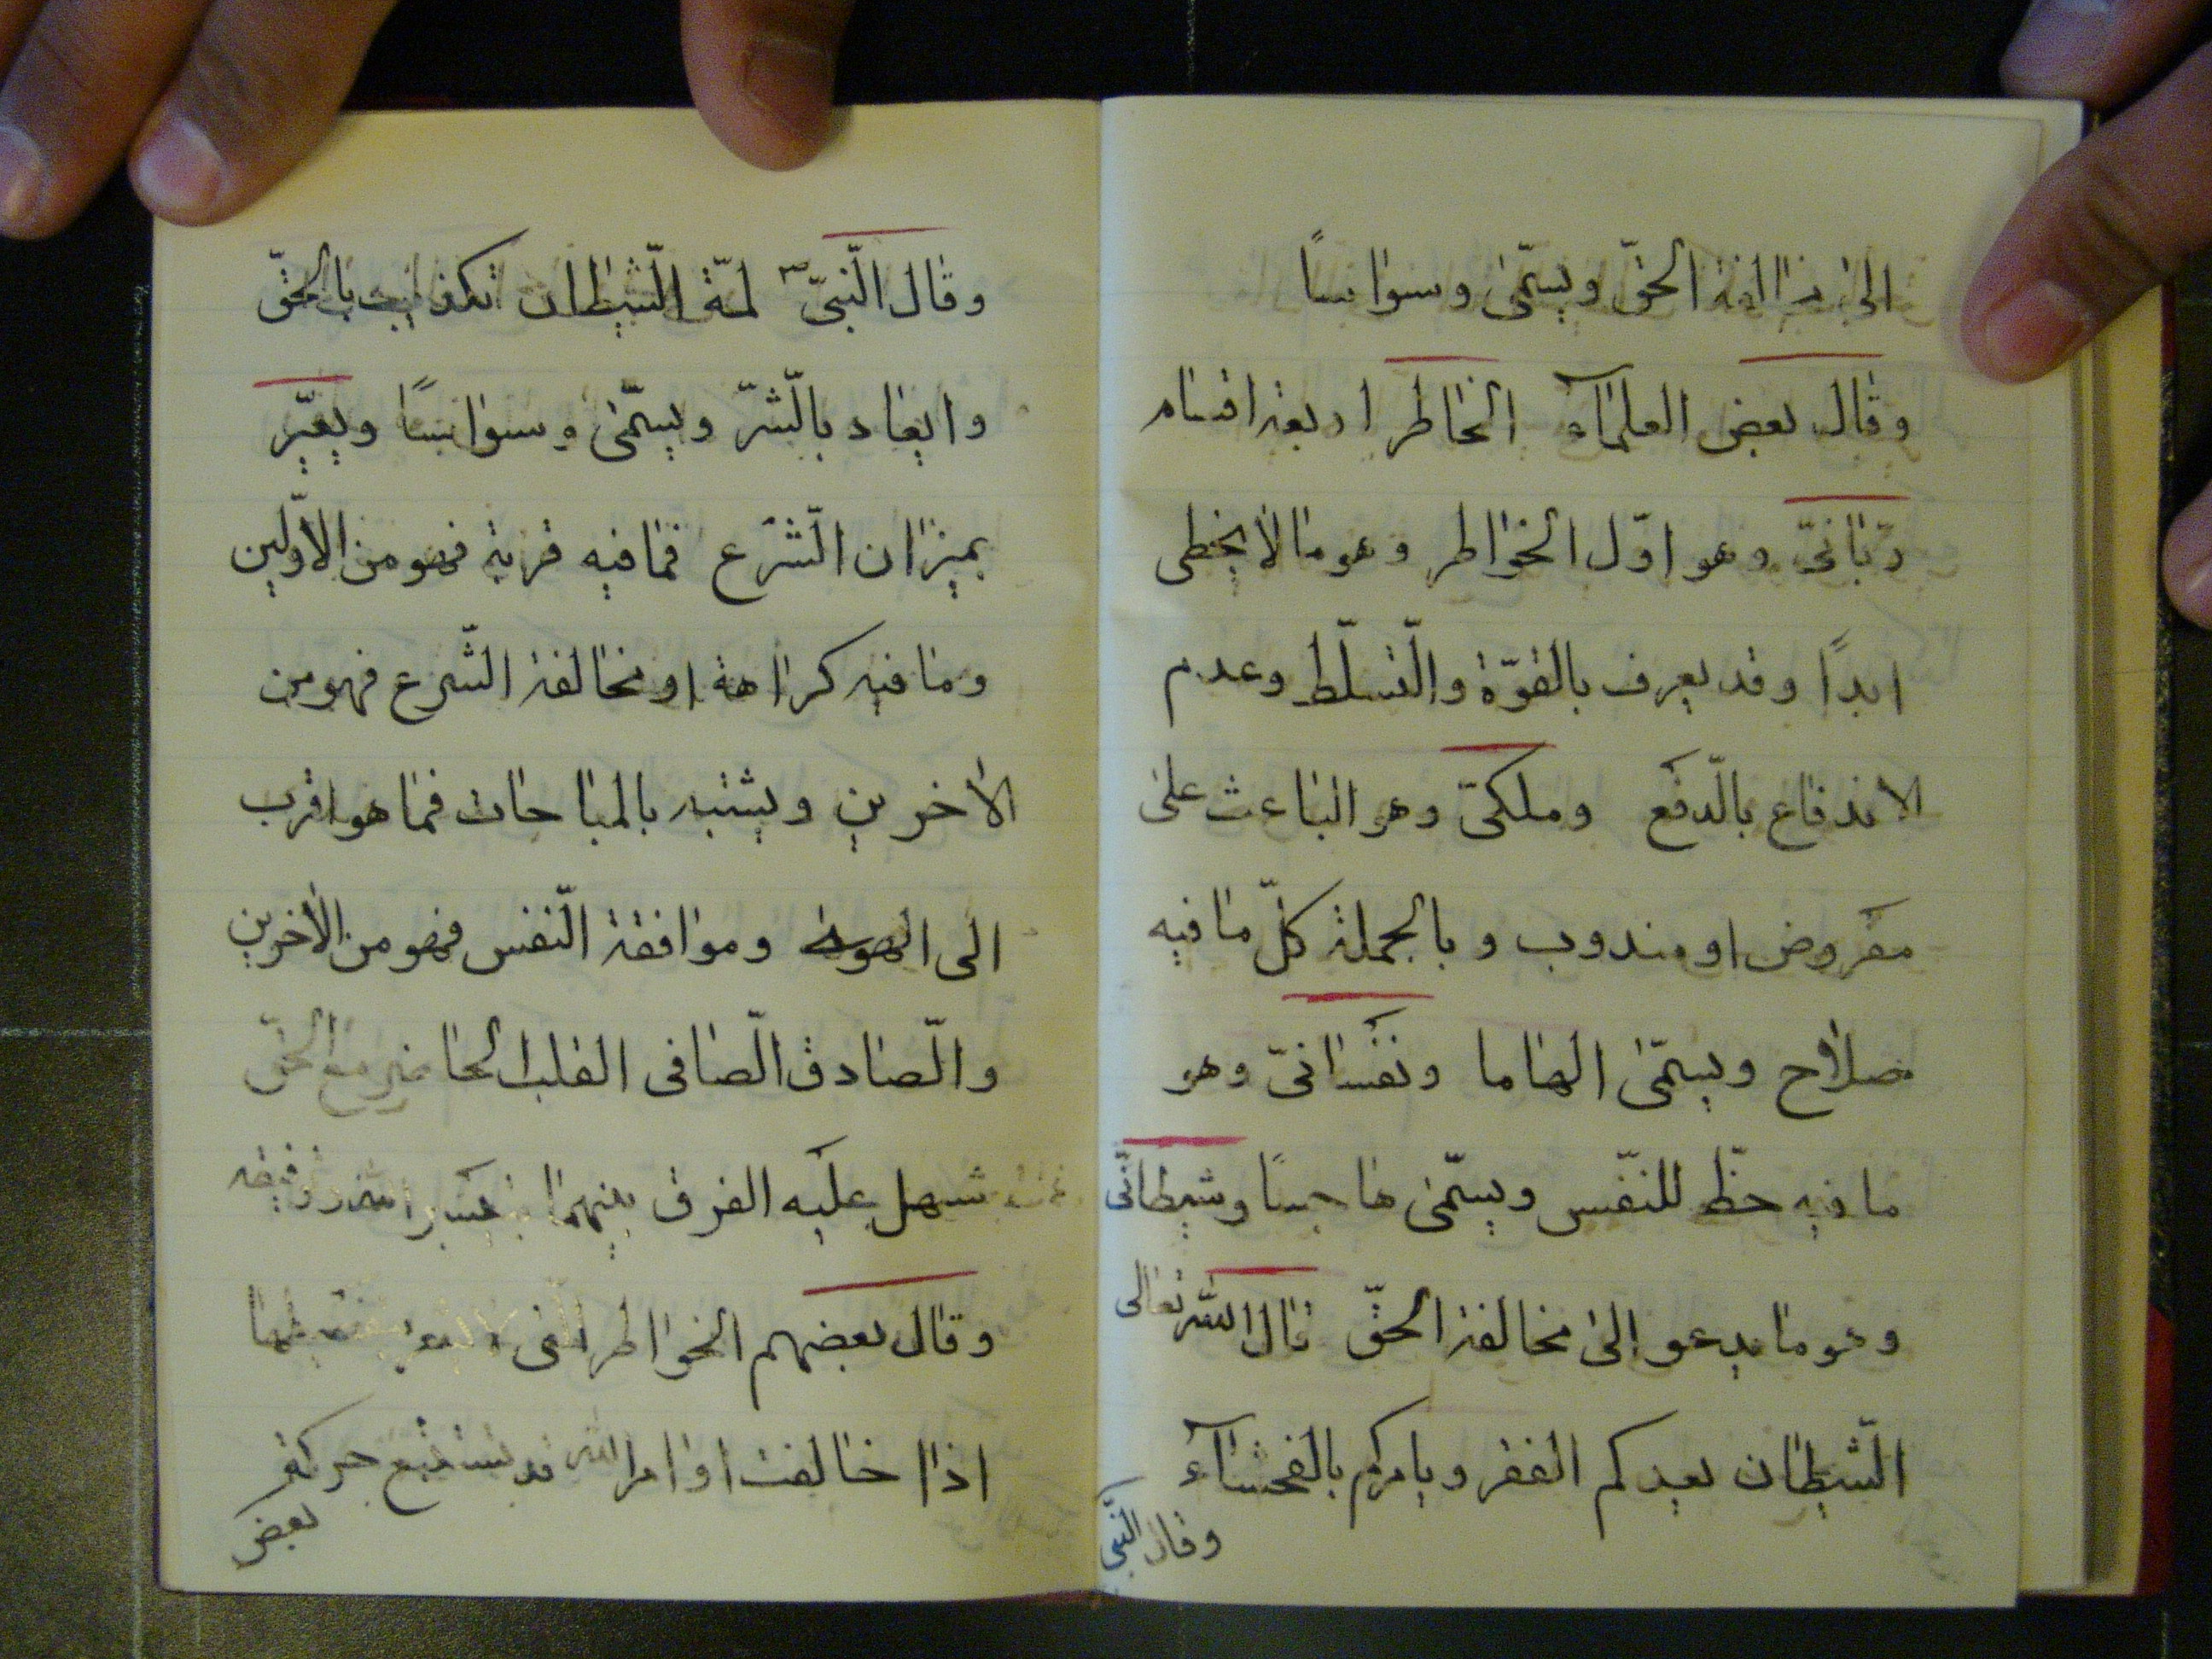 الى مخالفة الحقّ ويسمّى وسواسًا
وقال بعض العلمآء الخاطر اربعة اقسام
ربّانىّ وهو اوّل الخواطر وهو ما لا يخطى
ابدًا وقد يعرف بالقوّة والتّسلّط وعدم
الاندفاع بالدّفع وملكىّ وهو الباعث على
مفروض او مندوب وبالجملة كلّ ما فيه
صلاح ويسمّى الهاما ونفسانىّ وهو
ما فيه حظّ للنّفس ويسمّى هاجسًا وشيطانىّ
وهو ما يدعو الى مخالفة الحقّ قال الله تعالى
الشّيطان يعدكم الفقر ويامركم بالفحشآء
وقال النّبىّ
وقال النّبىّ ص لمّة الشّيطان تكذيب بالحقّ
وايعاد بالشّرّ ويسمّى وسواسًا ويعبّر
بميزان الشّرع فما فيه قربة فهو من الاوّلين
وما فيه كراهة او مخالفة الشّرع فهو من
الاخرين ويشتبه بالمباحات فما هو اقرب
الى الهوى وموافقة النّفس فهو من الاخرين
والصّادق الصّافى القلب الحاضر مع الحقّ
سهل عليه الفرق بينهما بتيسير الله وتوفيقه
وقال بعضهم الخواطر الّتى
اذا خالفت اوامر الله قد تستتبع حركة
بعض